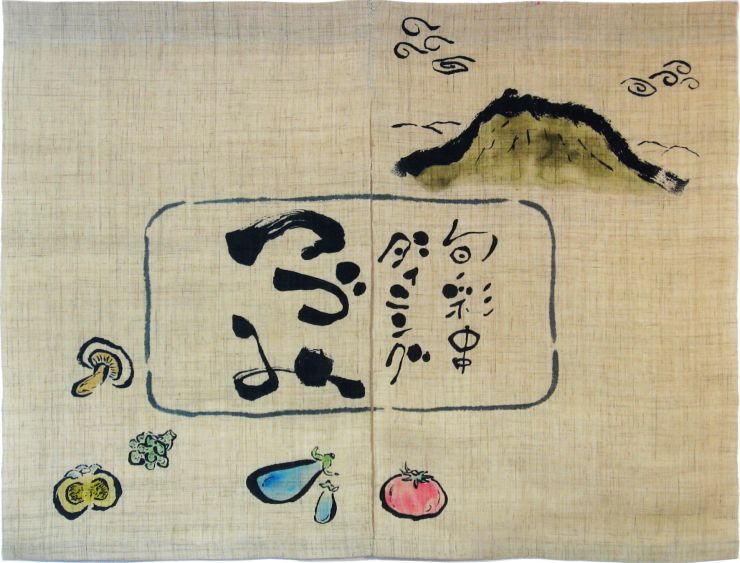 旬彩串
ダイニング
つづみ